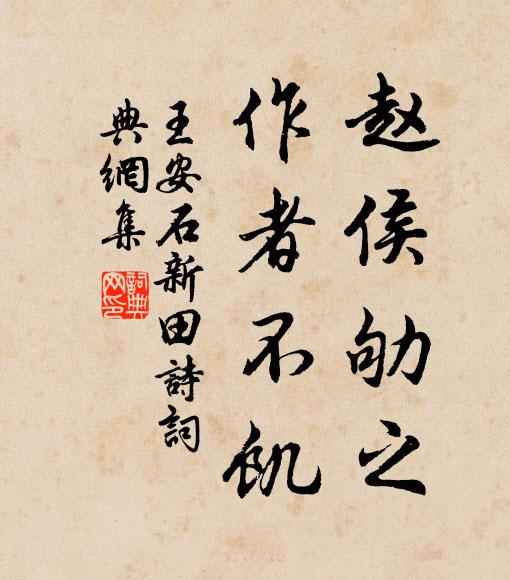 赵侯劬之
作者不飢
王安石新田詩詞
典網集
詞典
网印